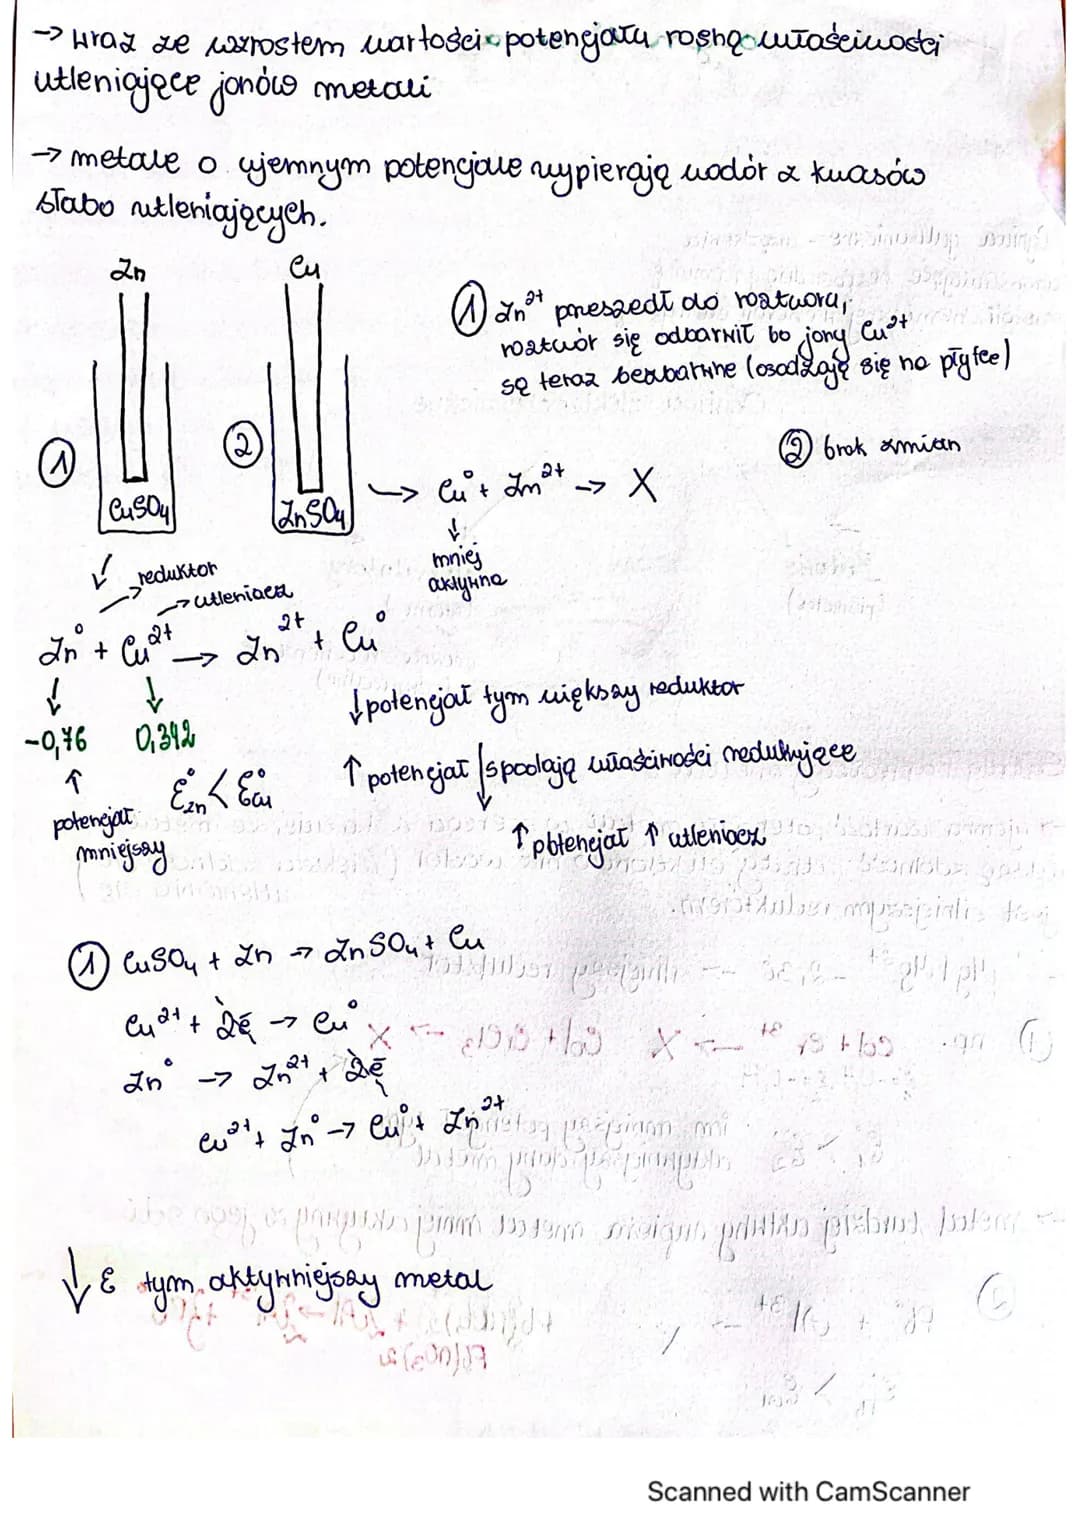 → wraz ze wzrostem wartości potencjału rosną właściwości
utleniające jonów metali
→ metale o ujemnym potencjale wypierają wodór z kwasów
słabo utleniających.
Zn
Cu
① Zn²⁺ przeszedł do roztworu,
roztwór się odbarwił bo jony Cu²⁺
są teraz bezbarwne (osadzają się na płytce)
①
CuSO₄
②
ZnSO₄
② brak zmian
→ Cu⁰ + Zn²⁺ → X
↓
mniej
aktywna
↙ → reduktor
→ utleniacz
Zn⁰ + Cu²⁺ → Zn²⁺ + Cu⁰
↓ ↓
-0,76 0,342
↑
potencjał
mniejszy
E°Zn < E°Cu
↓ potencjał tym większy reduktor
↑ potencjał spadają właściwości redukujące
↓
↑ potencjał ↑ utleniacz
① CuSO₄ + Zn → ZnSO₄ + Cu
Cu²⁺ + 2ē → Cu⁰
Zn⁰ → Zn²⁺ + 2ē
Cu²⁺ + Zn⁰ → Cu⁰ + Zn²⁺
↓ E tym aktywniejszy metal
Scanned with CamScanner